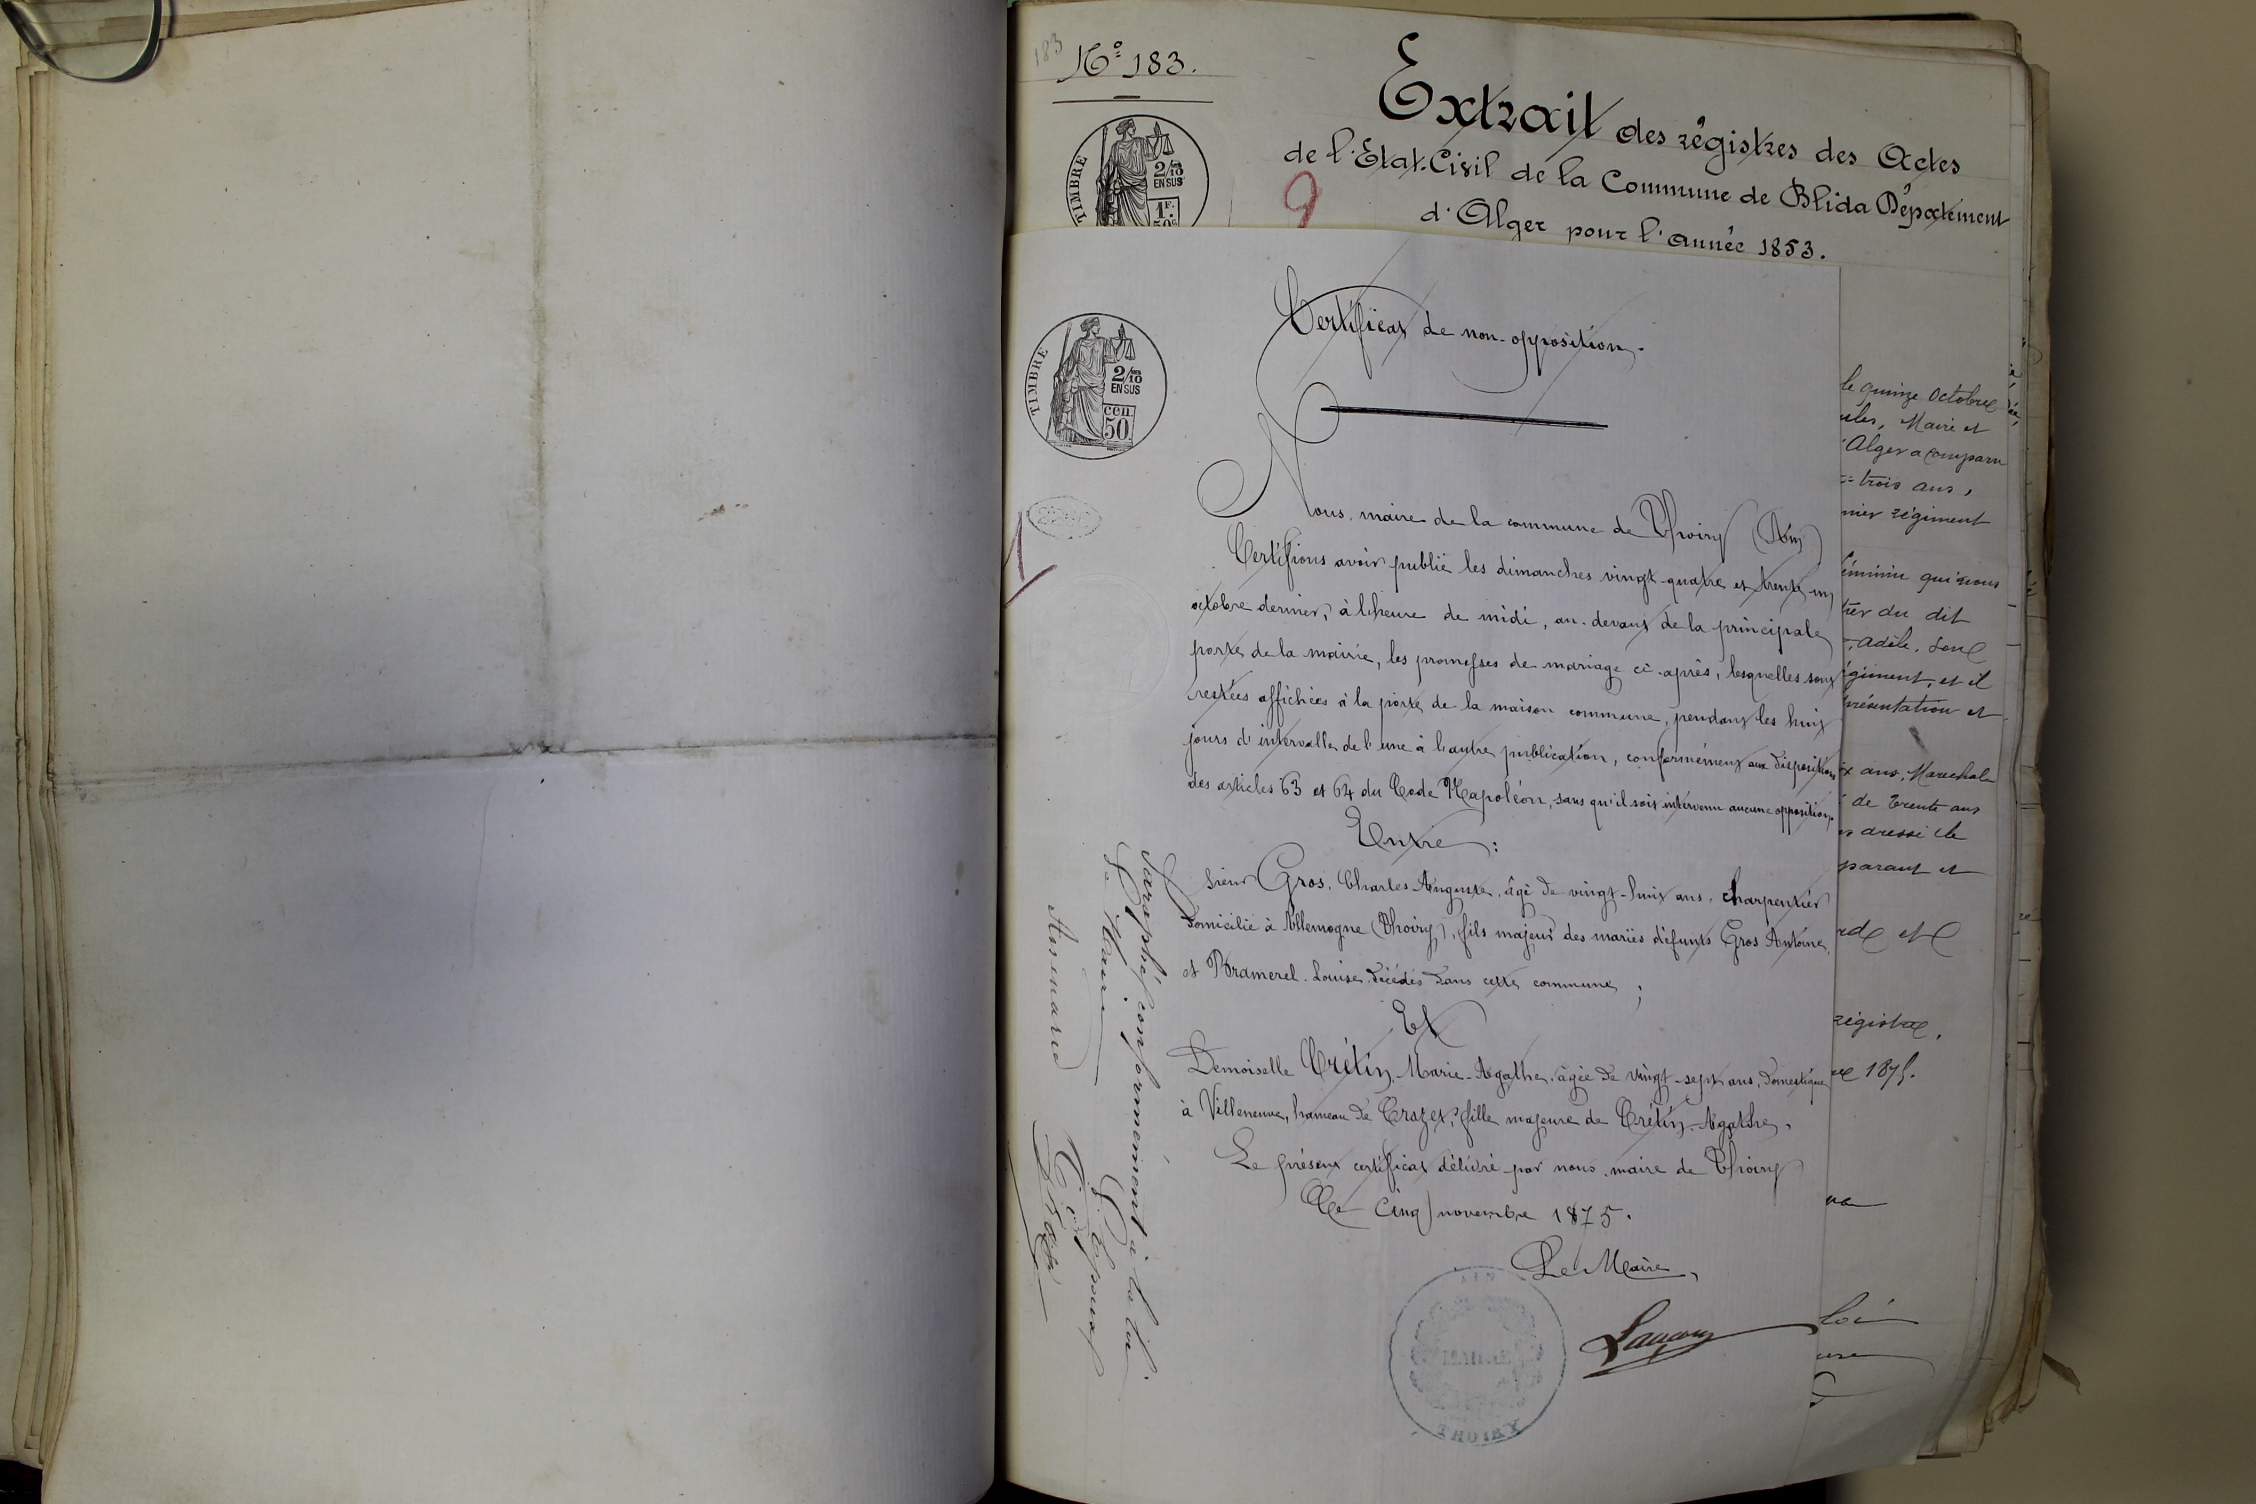 183
Nº 183.
Extrait des régistres des Actes
de l'Etat-Civil de la Commune de Blida Département
d'Alger pour l'année 1853.
TIMBRE
2/10
EN SUS
1F.
50c
9
Certificat de non-opposition.
TIMBRE
2/10
EN SUS
cen.
50
1
Nous, maire de la commune de Thoiry (Ain)
Certifions avoir publié les dimanches vingt-quatre et trente un
octobre dernier, à l'heure de midi, au-devant de la principale
porte de la mairie, les promesses de mariage ci-après, lesquelles sont
restées affichées à la porte de la maison commune, pendant les huit
jours d'intervalle de l'une à l'autre publication, conformément aux dispositions
des articles 63 et 64 du Code Napoléon, sans qu'il soit intervenu aucune opposition.
Entre :
Sieur Gros, Charles Auguste, âgé de vingt-huit ans, charpentier
domicilié à Allemogne (Thoiry), fils majeur des mariés défunts Gros Antoine
et Bramerel Louise, décédés dans cette commune ;
Et
Demoiselle Crétin, Marie-Agathe, âgée de vingt-sept ans, domestique
à Villeneuve, hameau de Crozet, fille majeure de Crétin Agathe.
Le présent certificat délivré par nous, maire de Thoiry
Le Cinq novembre 1875.
Le Maire,
MAIRIE
THOIRY
AIN
Paraphé conformément à la loi
Le Maire
L'Epoux
le quinze Octobre
Maire et
Alger a comparu
trois ans,
régiment
féminin qui nous
du dit
Adèle, seul
et il
présentation et
ans, Marechal
de trente ans
dressé le
et
et
régistre.
1875.
loi